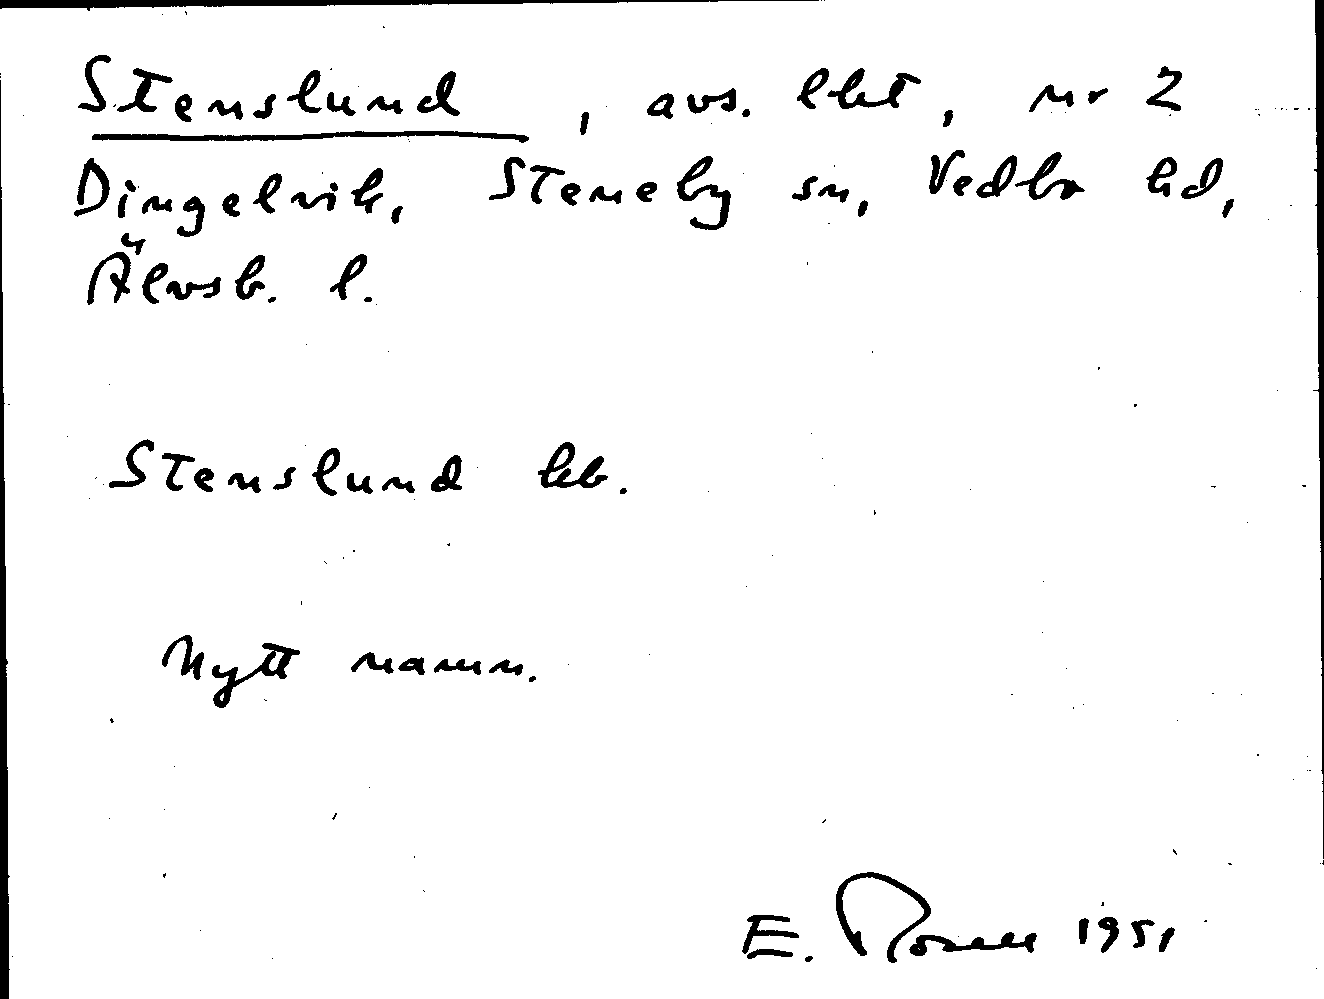 Stenslund, avs. lht, nr 2
Dingelvik, Steneby sn, Vedbo hd,
Älvsb. l.
Stenslund kb.
Nytt namn.
E. Rosell 1951